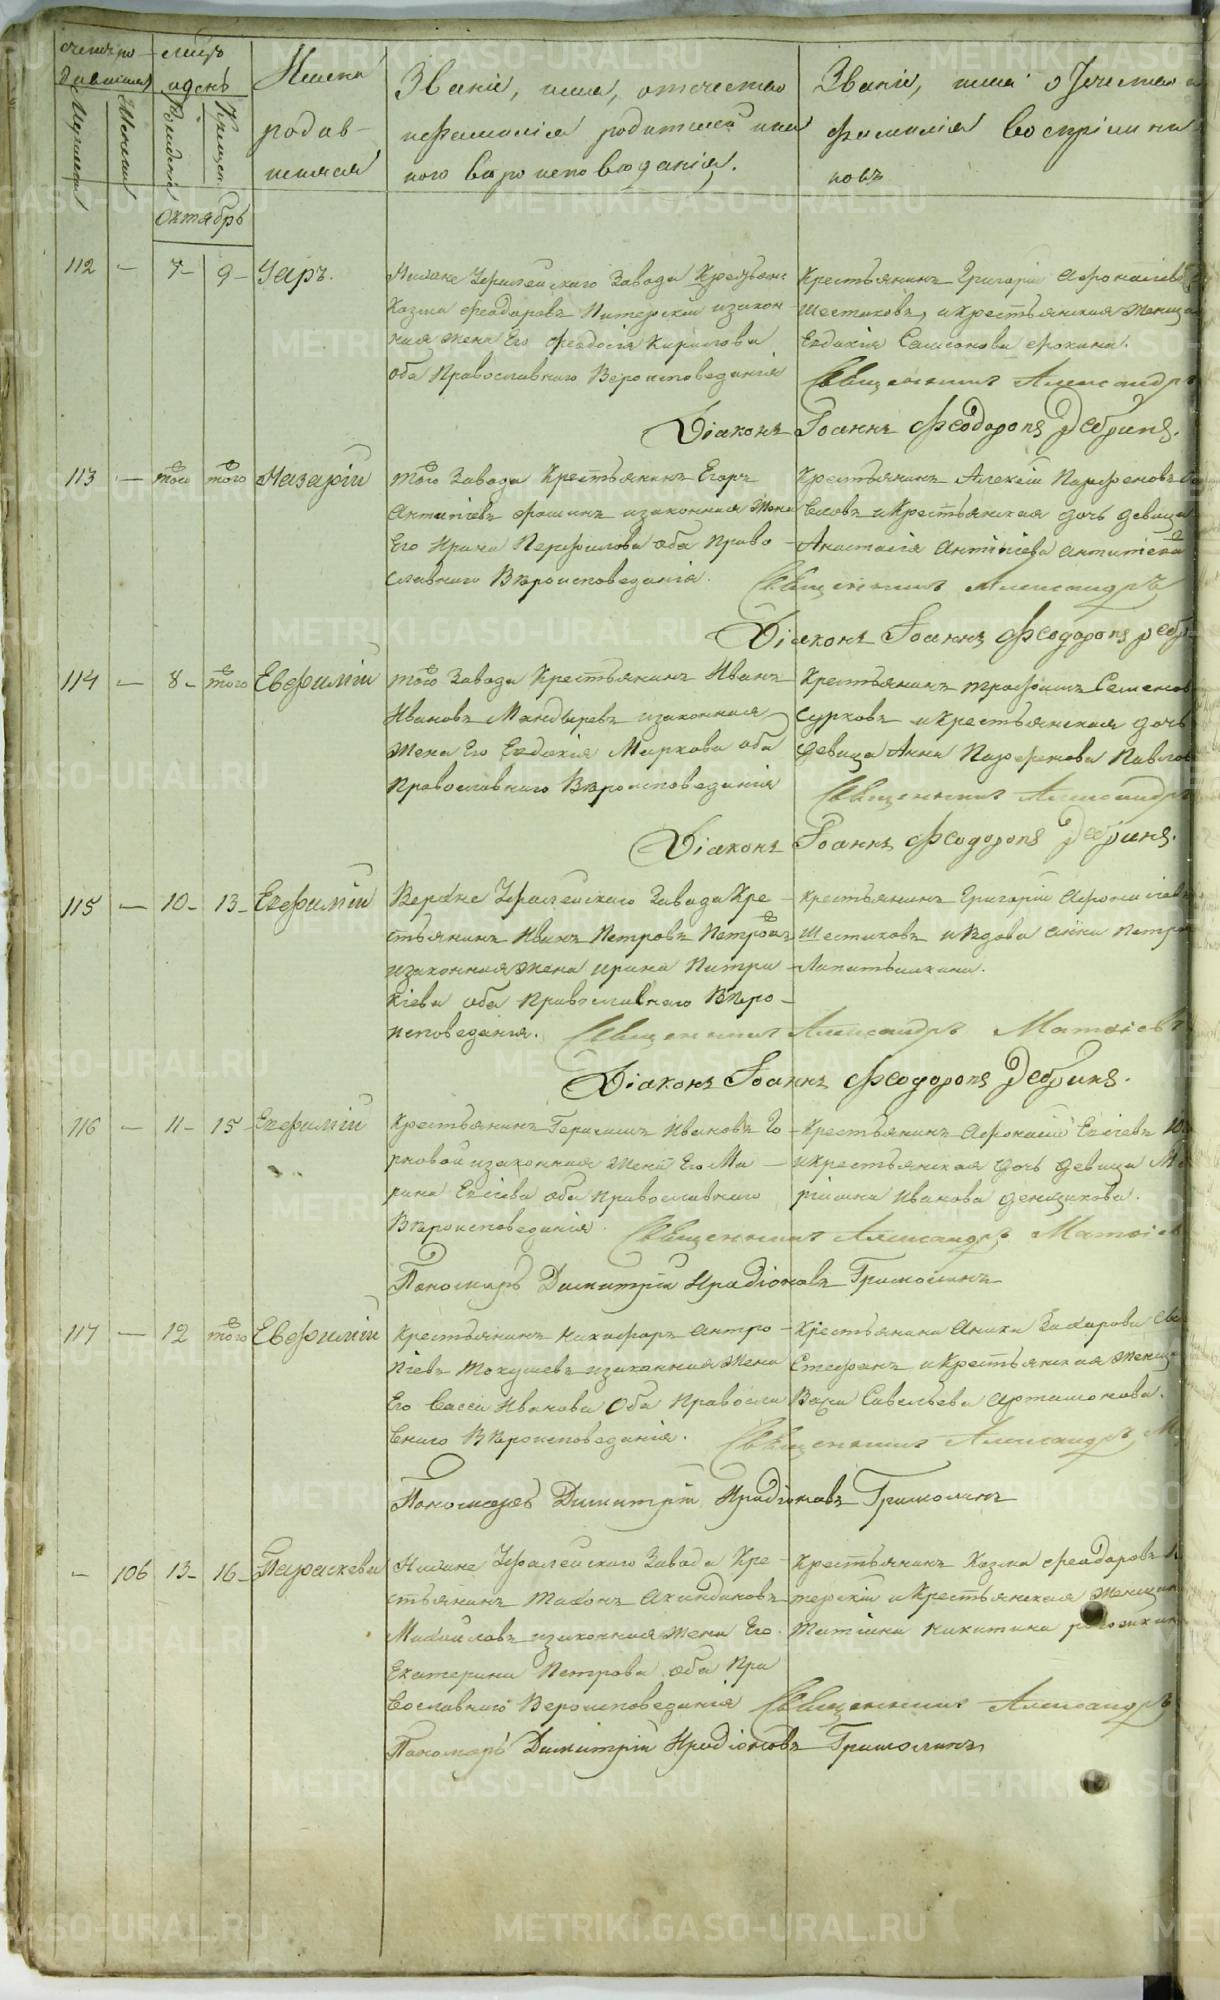 Имена
родив-
шихся
Званіе, имя, отчество
и фамилія родителей и ка
кого вероисповѣданія.
Званіе, имя отчество и
фамилія воспріемни
ковъ
Мужеска
Женска
Рожденія
Крещен.
Октябрь
112 — 7 — 9 — Уаръ.
Нижне Уфалейскаго Завода Крестьянинъ
Козма Феодоровъ Питерскій и закон
ная жена Его Феодосія Кирилова
оба Православнаго Вероисповеданія
Крестьянинъ Григорій Афонасіевъ
Шестаковъ, и крестьянская женща
Евдокія Самсонова Фокина.
Священникъ Александръ
Діаконъ Іоаннъ Феодоровъ Дебринъ.
113 — того того Назарій
того Завода Крестьянинъ Егоръ
Антипіевъ Фошинъ и законная жена
Его Ирина Перфилова оба Право
славнаго Вѣроисповеданія.
Крестьянинъ Алексій Парфеновъ
и Крестьянская дочь девица
Анастасія Антипіева
Священникъ Александръ
Діаконъ Іоаннъ Феодоровъ Дебри
114 — 8 — того Евфимій
того Завода Крестьянинъ Иванъ
Ивановъ Мандыревъ и законная
жена Его Евдокія Маркова оба
Православнаго Вѣроисповеданія
Крестьянинъ Трофимъ Семенов
Сурковъ и крестьянская дочь
девица Анна Парфенова Павлов
Священникъ Александръ
Діаконъ Іоаннъ Феодоровъ Дебринъ.
115 — 10 — 13 — Евфимій
Верхне Уфалейскаго Завода Кре —
стьянинъ Иванъ Петровъ
и законная жена Ирина Патри
кіева оба Православнаго Веро —
исповеданія.
Крестьянинъ Григорій Афонасіевъ
Шестаковъ и Вдова Анна Петро
Священникъ Александръ Матѳіевъ
Діаконъ Іоаннъ Феодоровъ Дебринъ.
116 — 11 — 15 — Евфимій
Крестьянинъ Герасимъ Ивановъ Го —
рновой и законная жена Его Ма —
рина Евсіева оба православнаго
Вѣроисповеданія.
Крестьянинъ Афонасій Евсіевъ
и крестьянская дочь девица Ма
ріамна Иванова Денщикова.
Священникъ Александръ Матѳіев
Пономарь Димитрій Иродіоновъ Грамолинъ
117 — 12 того Евфимій
Крестьянинъ Никифоръ Антро —
піевъ Токушевъ и законная жена
Его Васса Иванова Оба Правосла
внаго Вѣроисповеданія.
Крестьянина Аники Захарова сынъ
Стефанъ и крестьянская женща
Васса Савельева Артамонова.
Священникъ Александръ М
Пономарь Димитрій Иродіоновъ Грамолинъ
— 106 13 — 16 — Параскева
Нижне Уфалейскаго Завода Кре —
стьянинъ Тихонъ Акиндиновъ
Михайловъ и законная жена Его
Екатерина Петрова оба Пра
вославнаго Вероисповеданія
Крестьянинъ Козма Феодоровъ Пи
терскій и Крестьянская женщин
Татіана Никитина
Священникъ Александръ
Пономарь Димитрій Иродіоновъ Грамолинъ
METRIKI.GASO-URAL.RU